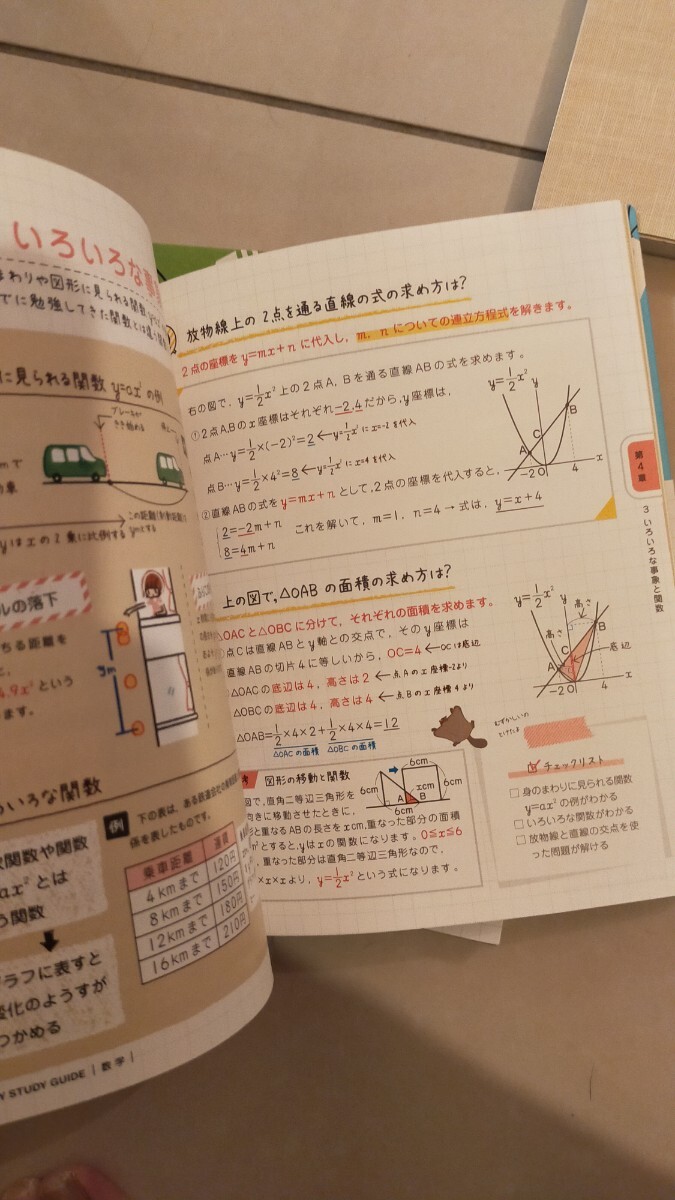 いろいろな事
まわりや図形に見られる関数
でに勉強してきた関数とは違う
に見られる関数 y=ax²の例
ブレーキが
きき始める
mで
yはxの2乗に比例する
ルの落下
ちる距離を
4.9x²という
ます。
ym
ろいろな関数
次関数や関数
ax²とは
う関数
ラフに表すと
変化のようすが
つかめる
例 下の表は、ある鉄道会社の
係を表したものです。
乗車距離 運賃
4kmまで 120円
8kmまで 150円
12kmまで 180円
16kmまで 210円
Y STUDY GUIDE | 数学 |
放物線上の2点を通る直線の式の求め方は?
2点の座標をy=mx+nに代入し,m,nについての連立方程式を解きます。
右の図で,y=1/2x²上の2点A,Bを通る直線ABの式を求めます。
①2点A,Bのx座標はそれぞれ−2,4だから,y座標は,
点A…y=1/2×(−2)²=2←y=1/2x²にx=−2を代入
点B…y=1/2×4²=8←y=1/2x²にx=4を代入
②直線ABの式をy=mx+nとして,2点の座標を代入すると,
2=−2m+n
8=4m+n
これを解いて,m=1,n=4→式は,y=x+4
y=1/2x² y
B
C
A
−2 O 4 x
上の図で,△OABの面積の求め方は?
△OACと△OBCに分けて,それぞれの面積を求めます。
点Cは直線ABとy軸との交点で,そのy座標は
直線ABの切片4に等しいから,OC=4←OCは底辺
△OACの底辺は4,高さは2←点Aのx座標−2より
△OBCの底辺は4,高さは4←点Bのx座標4より
△OAB=1/2×4×2+1/2×4×4=12
△OACの面積 △OBCの面積
y=1/2x²
高さ
高さ
B
C
A
4
底辺
−2 O 4 x
図形の移動と関数
図で,直角二等辺三角形を
向きに移動させたときに,
と重なるABの長さをxcm,重なった部分の面積
m²とすると,yはxの関数になります。0≦x≦6
,重なった部分は直角二等辺三角形なので,
×x×xより,y=1/2x²という式になります。
6cm
6cm
xcm
6cm
A B
6cm
チェックリスト
□ 身のまわりに見られる関数
y=ax²の例がわかる
□ いろいろな関数がわかる
□ 放物線と直線の交点を使
った問題が解ける
第4章
3 いろいろな事象と関数